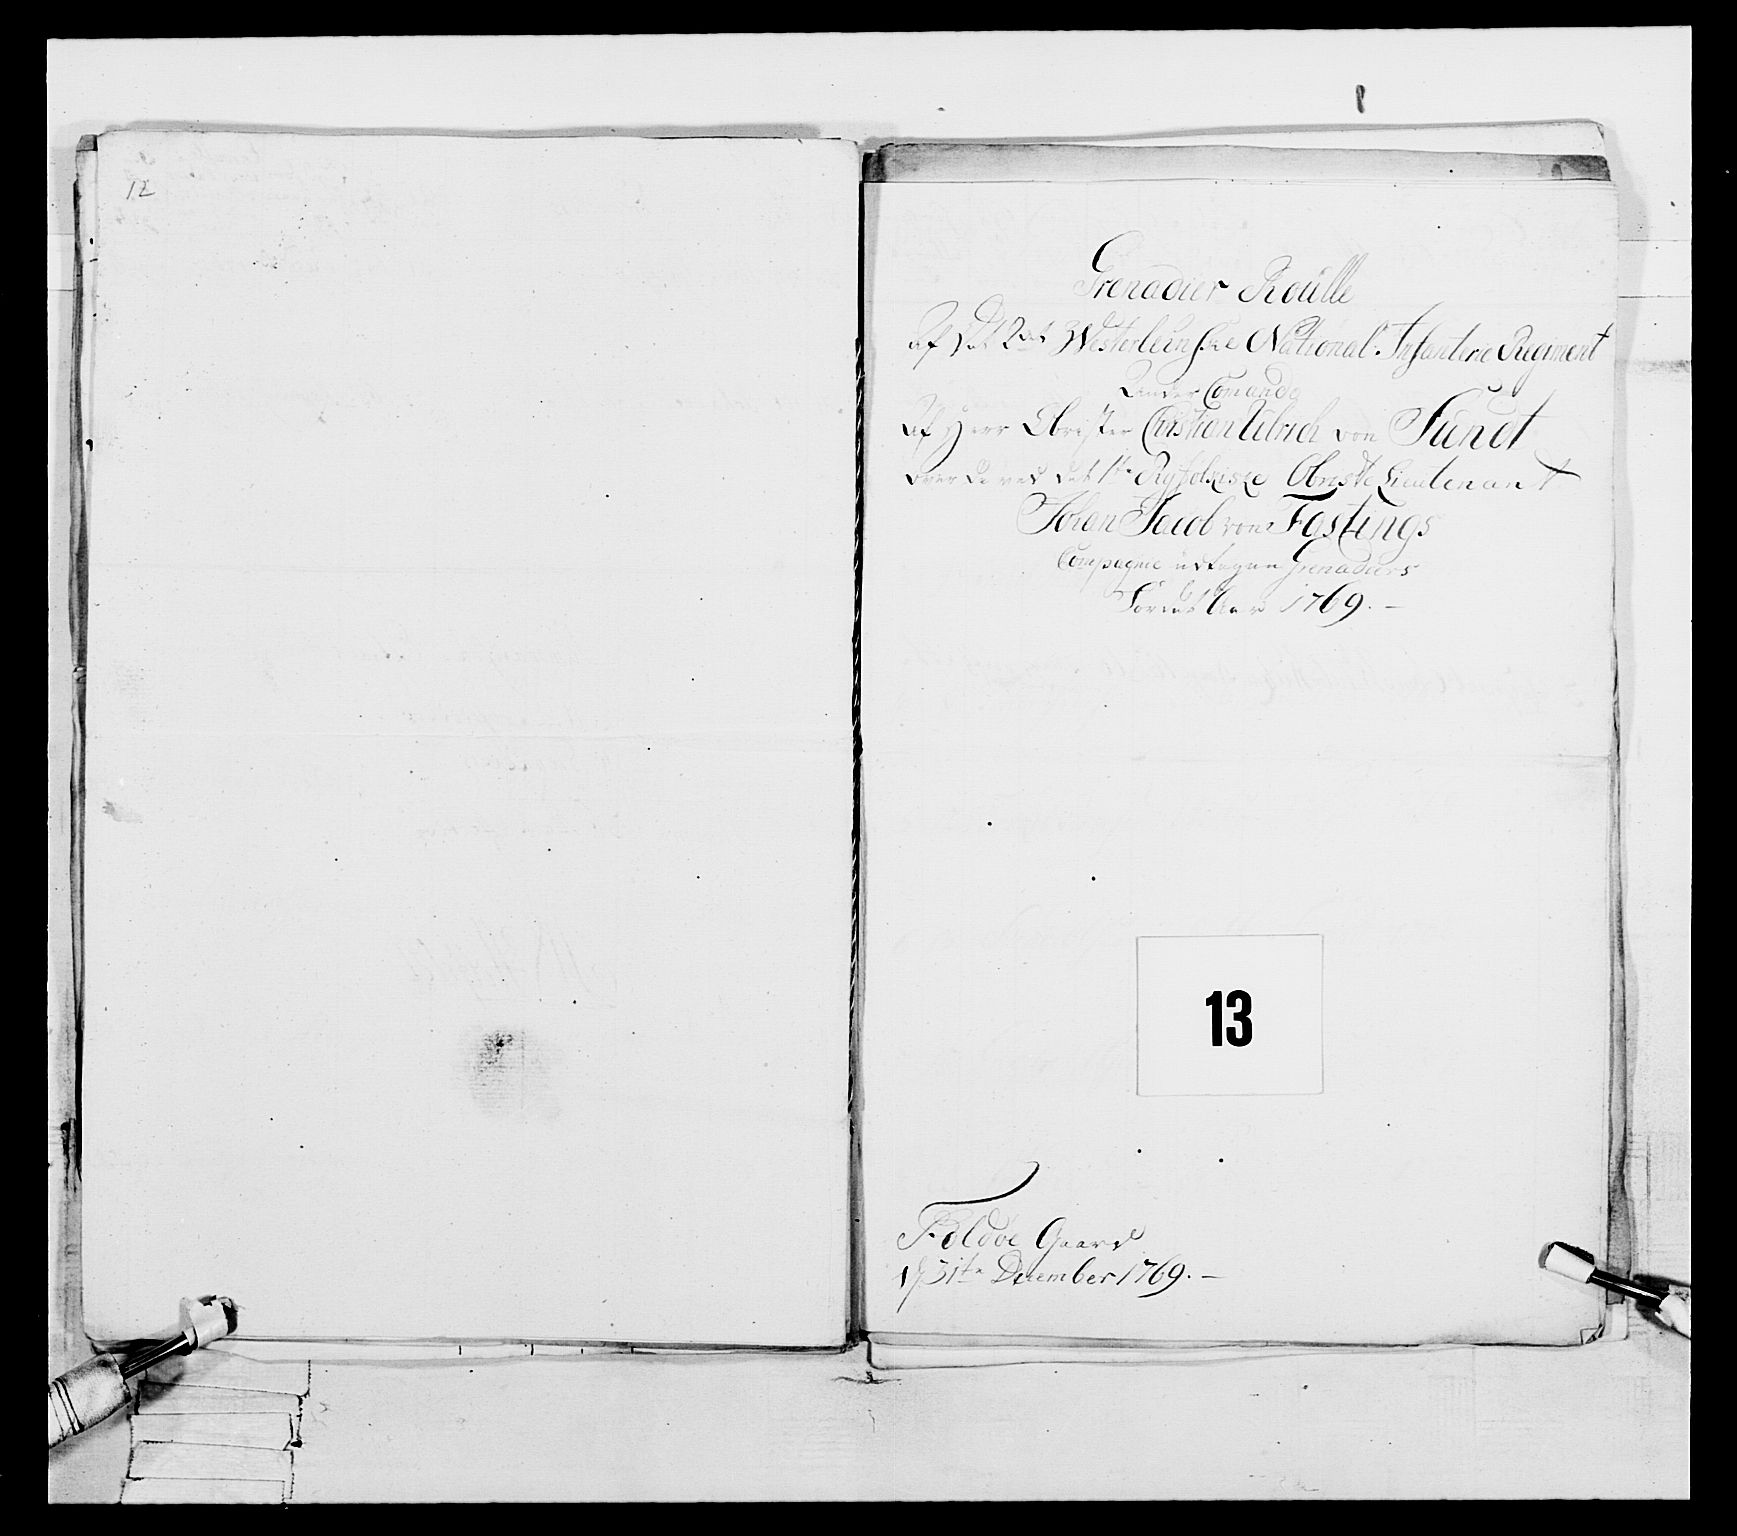 12
Grenadier Roulle
af Det 2det Westerleenske National Infanterie Regiment
Under Comando
af Herr Obrister Christian Ulrich von Sundt
over de ved det 1te Ryfylkiske Obriste Lieutenant
Johan Jacob von Fastings
Compagnie udtagne Grenadiers
for det Aar 1769. —
13
Foldöe Gaard
d 31te December 1769. —